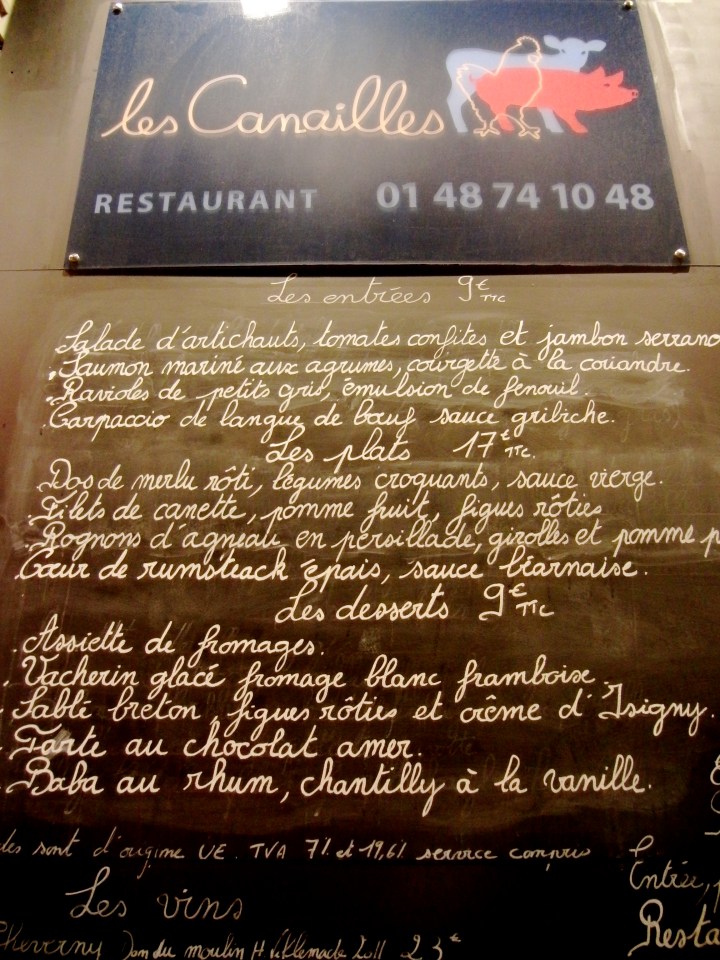 les Canailles
RESTAURANT 01 48 74 10 48
Les entrées 9€ TTC
Salade d'artichauts, tomates confites et jambon serrano
. Saumon mariné aux agrumes, courgette à la coriandre.
. Ravioles de petits gris, émulsion de fenouil.
. Carpaccio de langue de bœuf sauce gribiche.
Les plats 17€ TTC.
. Dos de merlu rôti, légumes croquants, sauce vierge.
. Filets de canette, pomme fruit, figues rôties
. Rognons d'agneau en persillade, girolles et pomme p
. Cœur de rumsteack épais, sauce béarnaise.
Les desserts 9€ TTC
. Assiette de fromages.
. Vacherin glacé fromage blanc framboise.
. Sablé breton, figues rôties et crème d'Isigny.
. Tarte au chocolat amer.
. Baba au rhum, chantilly à la vanille.
des sont d'origine UE. TVA 7% et 19,6% service compris
Entrée,
Les vins
Resta
Cheverny du moulin 23€